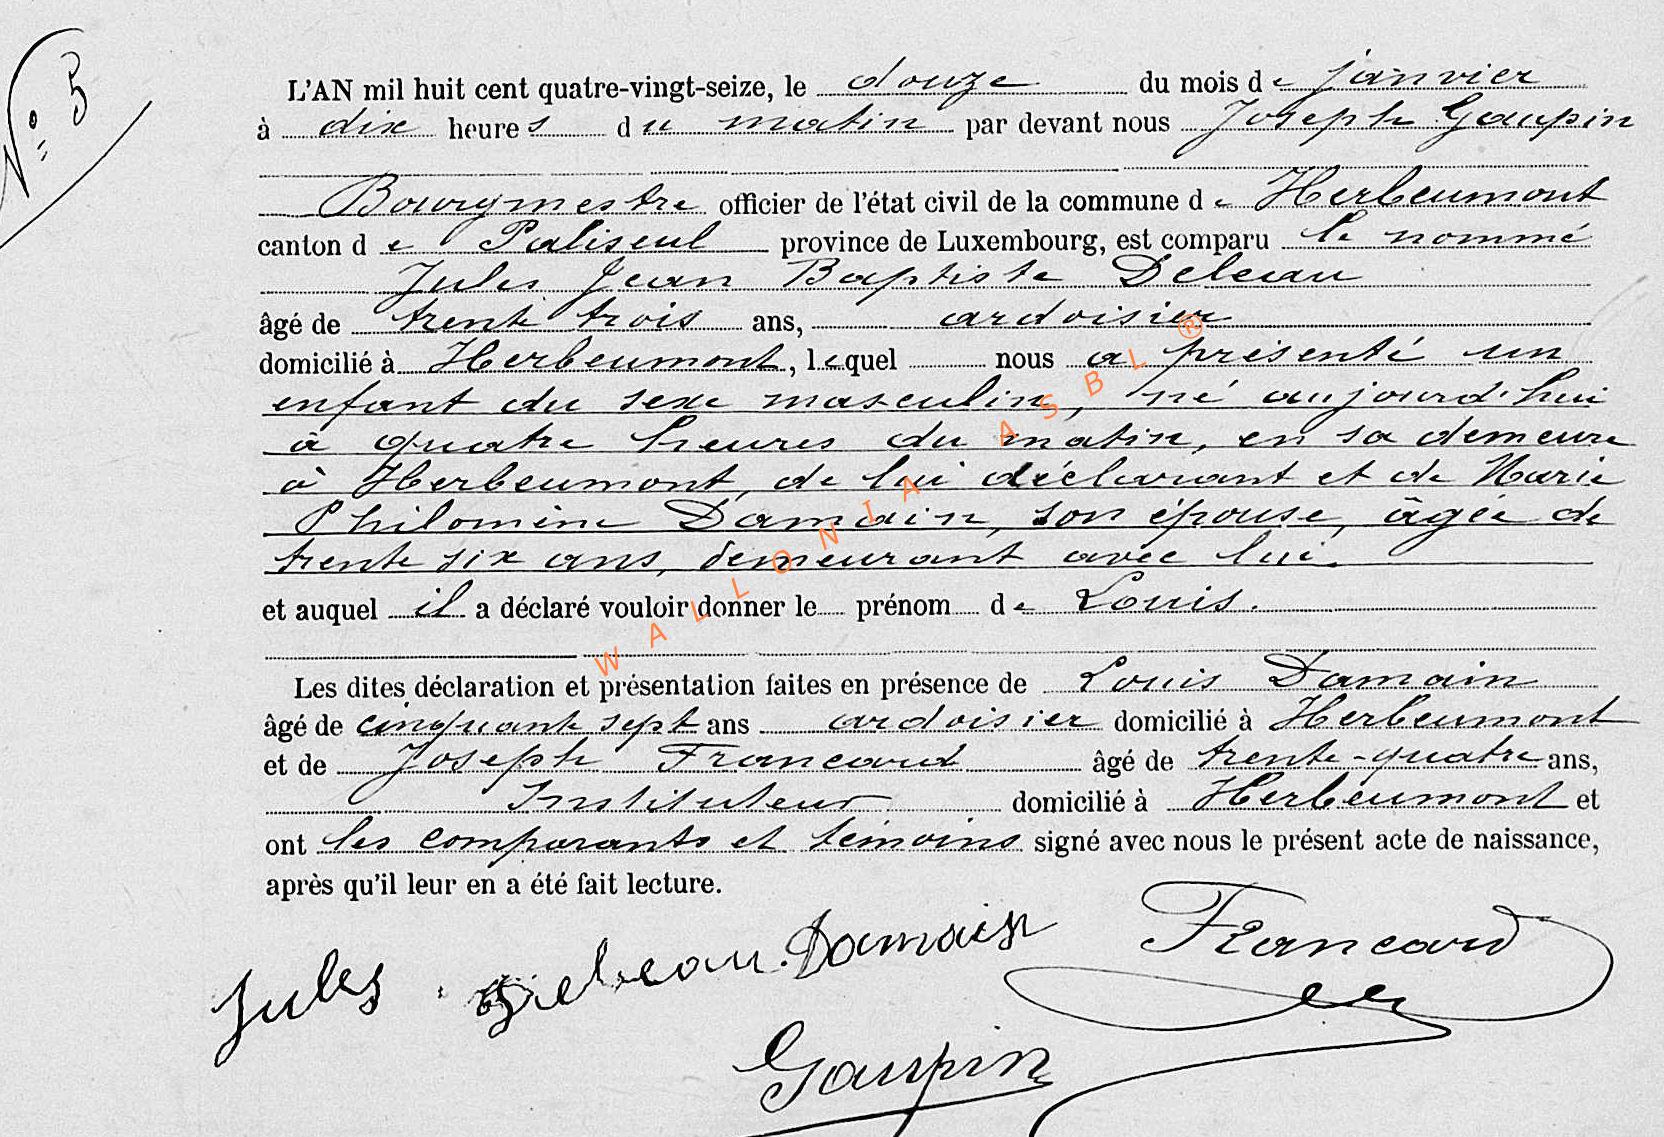 N° 5
L'AN mil huit cent quatre-vingt-seize, le douze du mois de janvier
à dix heures du matin par devant nous Joseph Gaupin
Bourgmestre officier de l'état civil de la commune de Herbeumont
canton de Paliseul province de Luxembourg, est comparu le nommé
Jules Jean Baptiste Deleau
âgé de trente trois ans, ardoisier
domicilié à Herbeumont, lequel nous a présenté un
enfant du sexe masculin, né aujourd'hui
à quatre heures du matin, en sa demeure
à Herbeumont, de lui déclarant et de Marie
Philomène Damain, son épouse, âgée de
trente six ans, demeurant avec lui.
et auquel il a déclaré vouloir donner le prénom de Louis.
Les dites déclaration et présentation faites en présence de Louis Damain
âgé de cinquante sept ans ardoisier domicilié à Herbeumont
et de Joseph Francard âgé de trente-quatre ans,
Instituteur domicilié à Herbeumont et
ont les comparants et témoins signé avec nous le présent acte de naissance,
après qu'il leur en a été fait lecture.
Jules Deleau. Damain Francard
Gaupin
WALLONIA ASBL ®